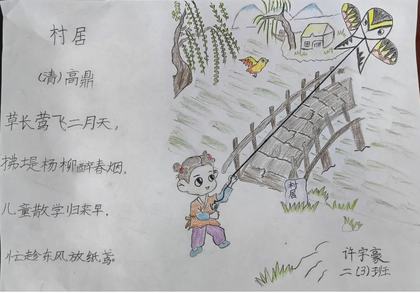 村居
(清)高鼎
草长莺飞二月天，
拂堤杨柳醉春烟.
儿童散学归来早.
忙趁东风放纸鸢
村居
许宇豪
二(3)班